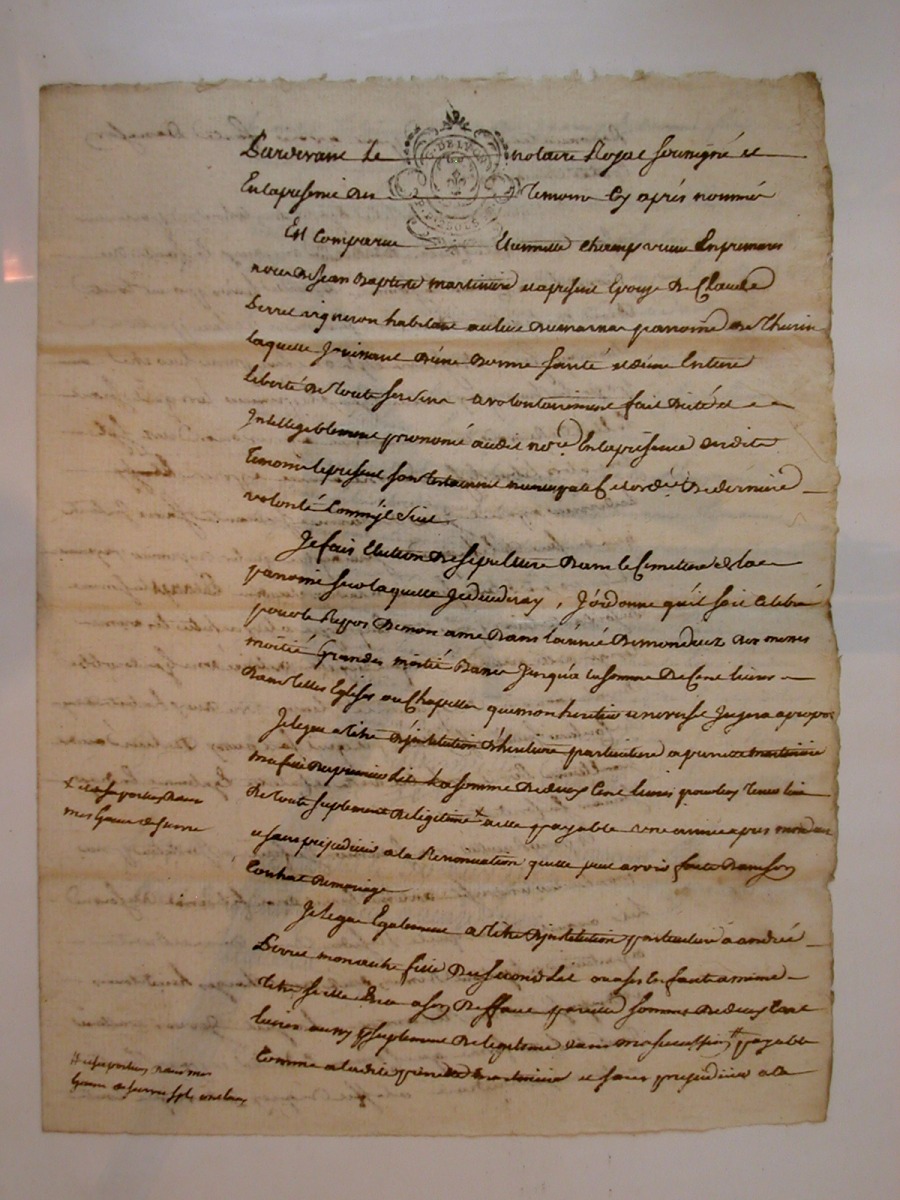 Pardevant le notaire Royal soussigné et
En la presence des temoins cy après nommés
Est Comparue Etiennette champ vieux En premieres
noces de Jean Baptiste martiniere et a present Epouse de Claude
Perret vigneron habitant au lieu de marnas paroisse de Thurin
laquelle Jouissant d'une bonne santé et d'une Entiere
liberté de tous ses sens a volontairement fait dicté et
Intelligeblement prononcé audit nore En la présence desdits
temoins le present son testament nuncupatif et ordce de derniere
volonté Comm'il suit
Je fais Election de sépulture dans le Cimetiere de la
paroisse sur laquelle Je decederay, J'ordonne qu'il soit celebré
pour le Repos de mon ame dans l'année de mon decez des messes
moitié grandes moitié basses Jusqu'à la somme de Cent livres
dans telles Eglises ou Chapelles que mon heritier universel Jugera a propos
Je legue a titre d'institution d'heritiere particuliere a pierrette martiniere
ma fille du premier lit la somme de deux Cent livres pour luy tenir lieu
de tout suplement de legitime + a elle payable une année apres mon decez
et sans prejudice a la Renonciation qu'elle peut avoir faite dans son
Contrat de mariage
Je legue Egalement a titre d'institution particuliere à andré
Perret mon autre fils du second lit
titre pareille somme de deux Cent
livres aussy suplement de legitime dans ma succession # payable
Comme a ladite pierrette martiniere et sans prejudice a la
+ et ses portions dans
mes Gains de survie
# et ses portions dans mes
Gains de survie